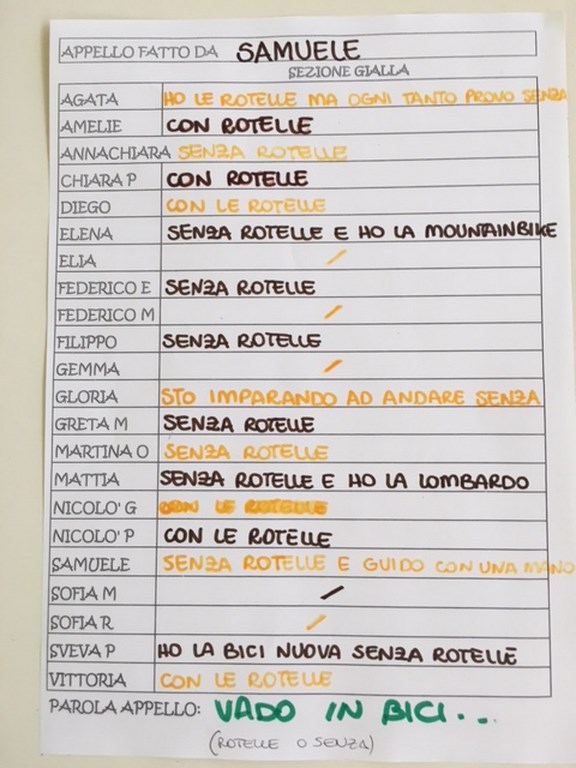 APPELLO FATTO DA SAMUELE
SEZIONE GIALLA
AGATA HO LE ROTELLE MA OGNI TANTO PROVO SENZA
AMELIE CON ROTELLE
ANNACHIARA SENZA ROTELLE
CHIARA P CON ROTELLE
DIEGO CON LE ROTELLE
ELENA SENZA ROTELLE E HO LA MOUNTAINBIKE
ELIA /
FEDERICO E SENZA ROTELLE
FEDERICO M /
FILIPPO SENZA ROTELLE
GEMMA /
GLORIA STO IMPARANDO AD ANDARE SENZA
GRETA M SENZA ROTELLE
MARTINA O SENZA ROTELLE
MATTIA SENZA ROTELLE E HO LA LOMBARDO
NICOLO' G CON LE ROTELLE
NICOLO' P CON LE ROTELLE
SAMUELE SENZA ROTELLE E GUIDO CON UNA MANO
SOFIA M /
SOFIA R /
SVEVA P HO LA BICI NUOVA SENZA ROTELLE
VITTORIA CON LE ROTELLE
PAROLA APPELLO: VADO IN BICI...
(ROTELLE O SENZA)